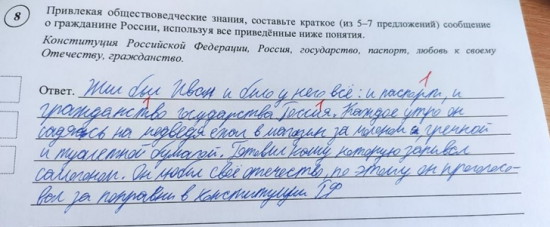 8
Привлекая обществоведческие знания, составьте краткое (из 5–7 предложений) сообщение
о гражданине России, используя все приведённые ниже понятия.
Конституция Российской Федерации, Россия, государство, паспорт, любовь к своему
Отечеству, гражданство.
1
Ответ. Жил был Иван и было у него всё: и паспорт, и
гражданство государства Россия. Каждое утро он
садясь на медведя ехал в магазин за молоком гречкой
и туалетной бумагой. Готовил кашу которую запивал
самогоном. Он любил своё отечество, по этому он проголосо-
вал за поправки в конституции РФ